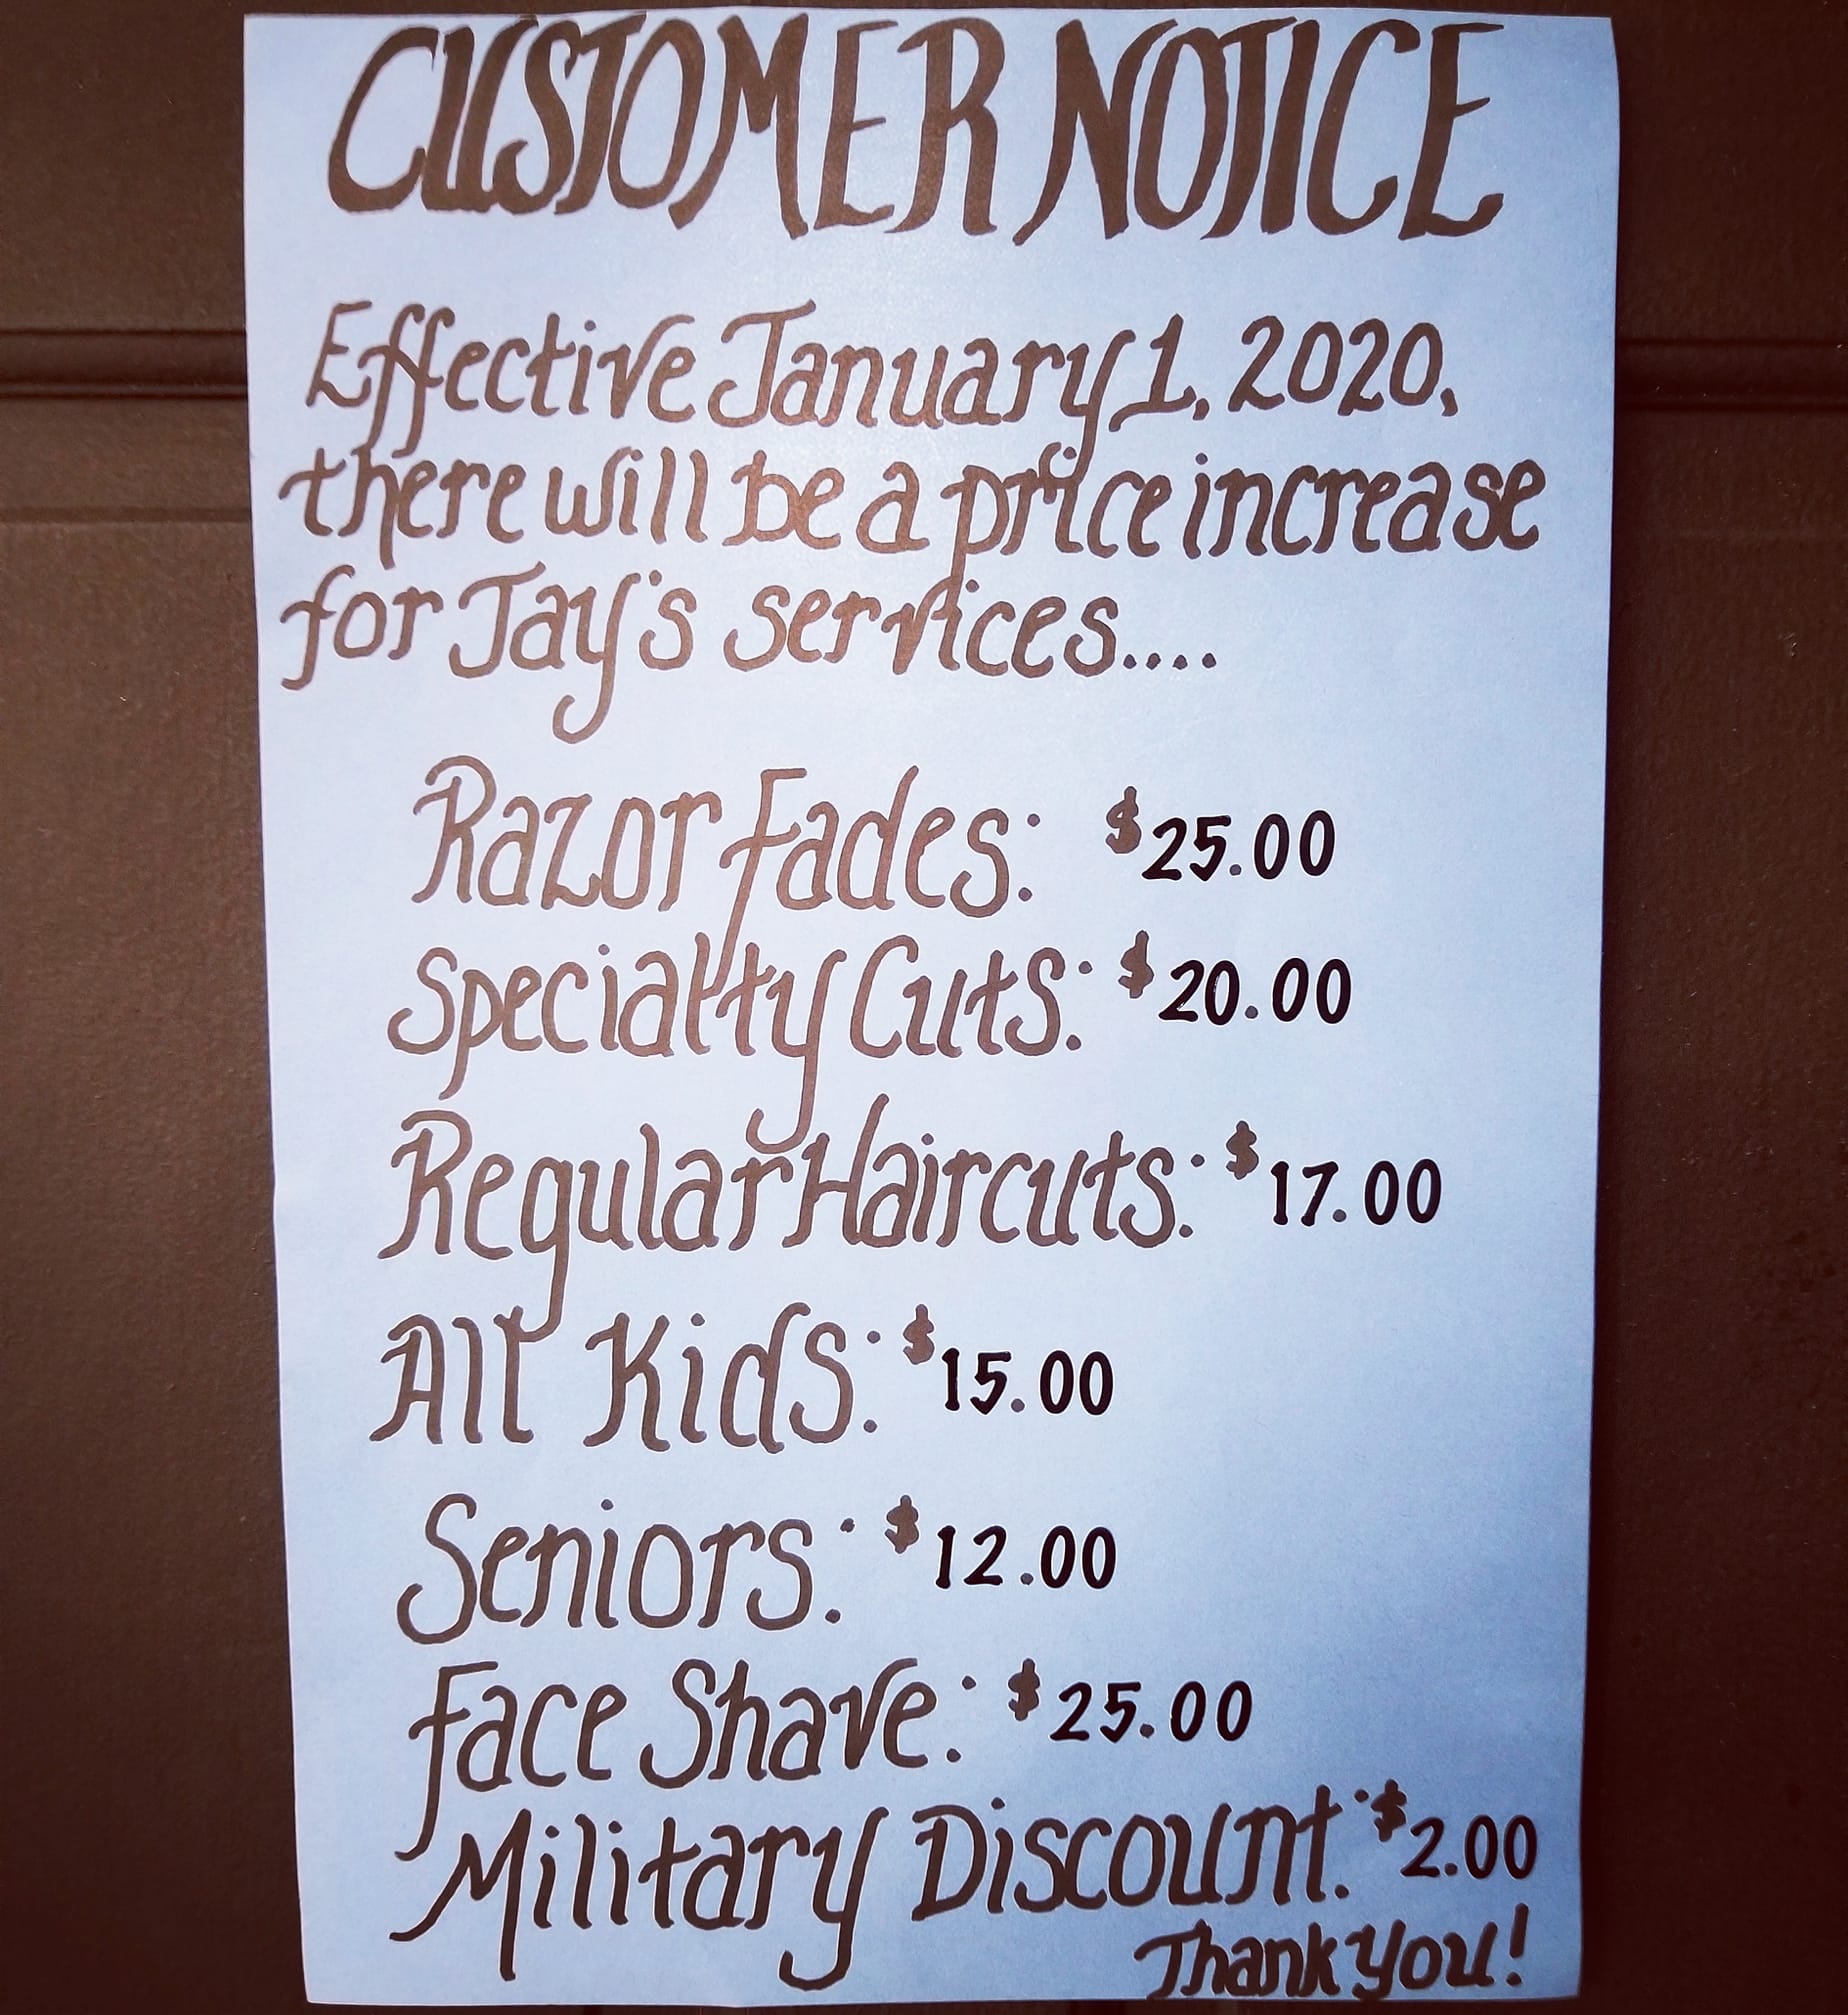 CUSTOMER NOTICE
Effective January 1, 2020,
there will be a price increase
for Jay's services....
Razor Fades: $25.00
Specialty Cuts: $20.00
Regular Haircuts: $17.00
All Kids: $15.00
Seniors: $12.00
Face Shave: $25.00
Military Discount: $2.00
Thank You!